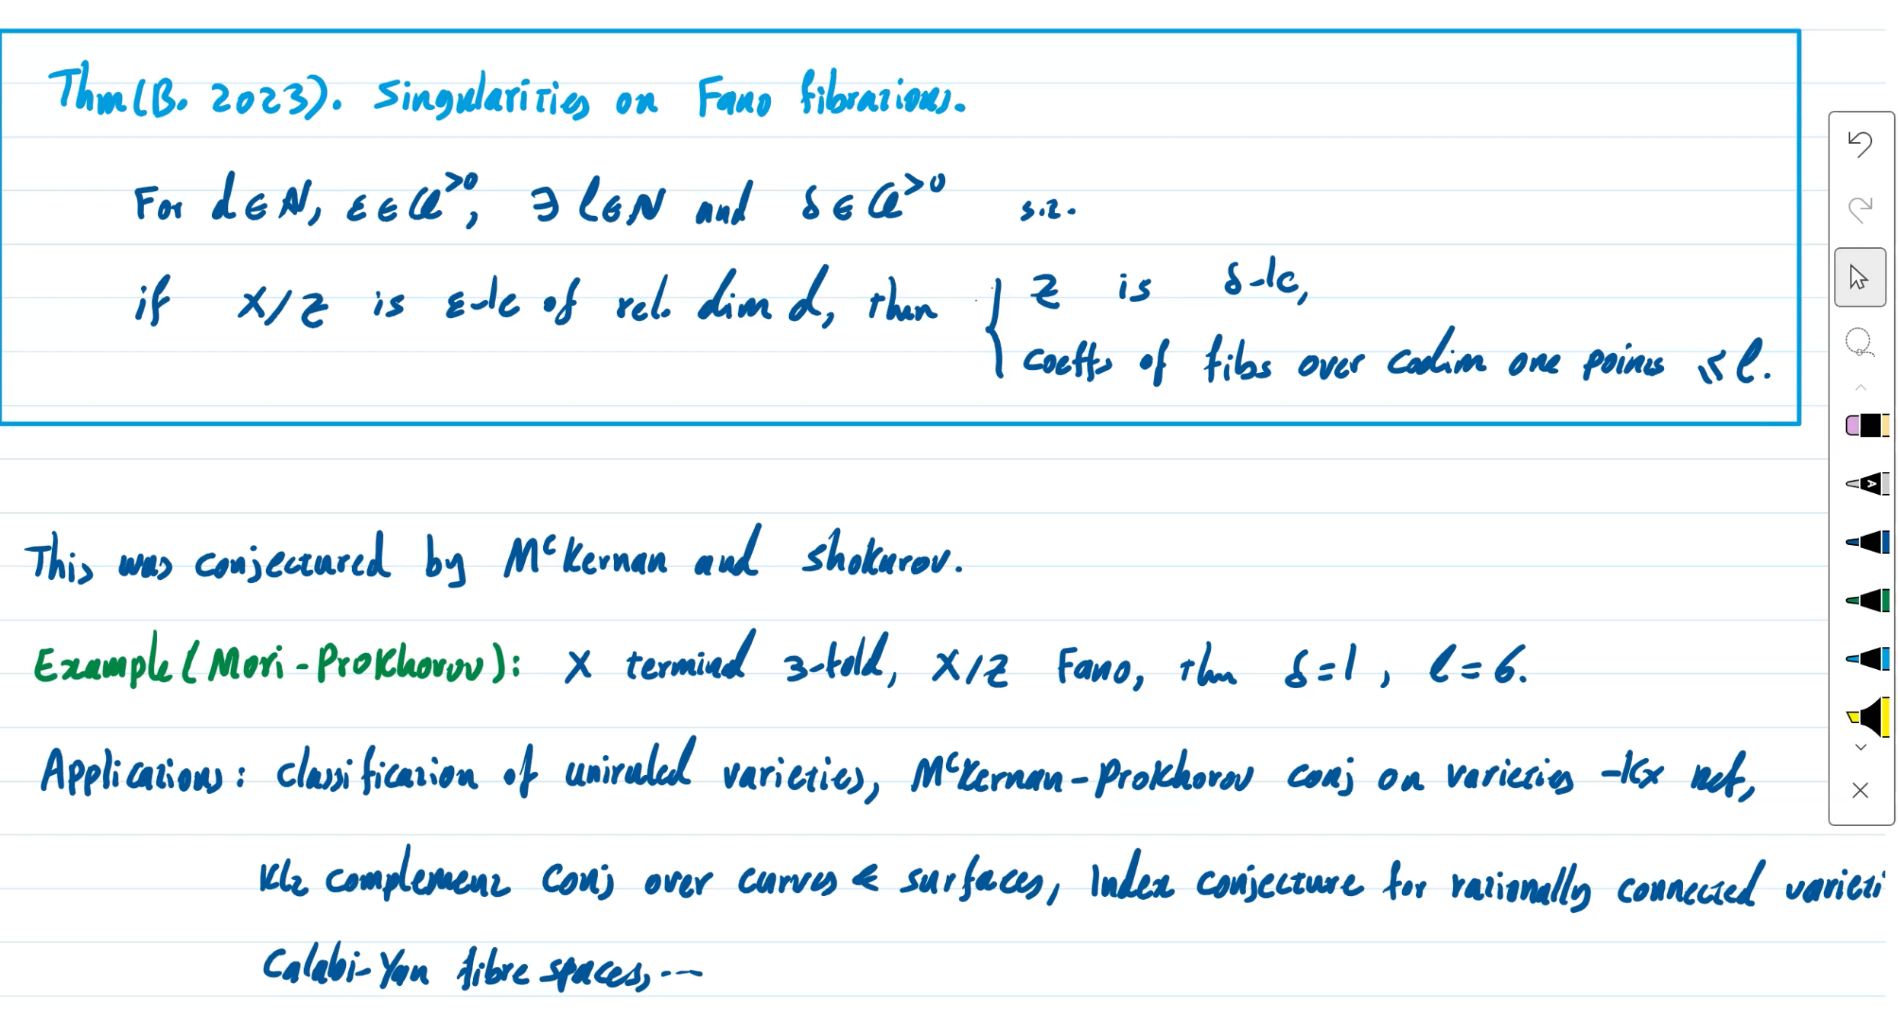 Thm(B. 2023). Singularities on Fano fibrations.
For d ∈ ℕ, ε ∈ ℚ^{>0}, ∃ l ∈ ℕ and δ ∈ ℚ^{>0} s.t.
if X/Z is ε-lc of rel. dim d, then { Z is δ-lc,
coeffs of fibs over codim one points ≤ l.
This was conjectured by McKernan and Shokurov.
Example (Mori-Prokhorov): X terminal 3-fold, X/Z Fano, then δ=1, l=6.
Applications: classification of uniruled varieties, McKernan-Prokhorov conj on varieties -Kx nef,
klt complement conj over curves & surfaces, Index conjecture for rationally connected varieti
Calabi-Yau fibre spaces, ...